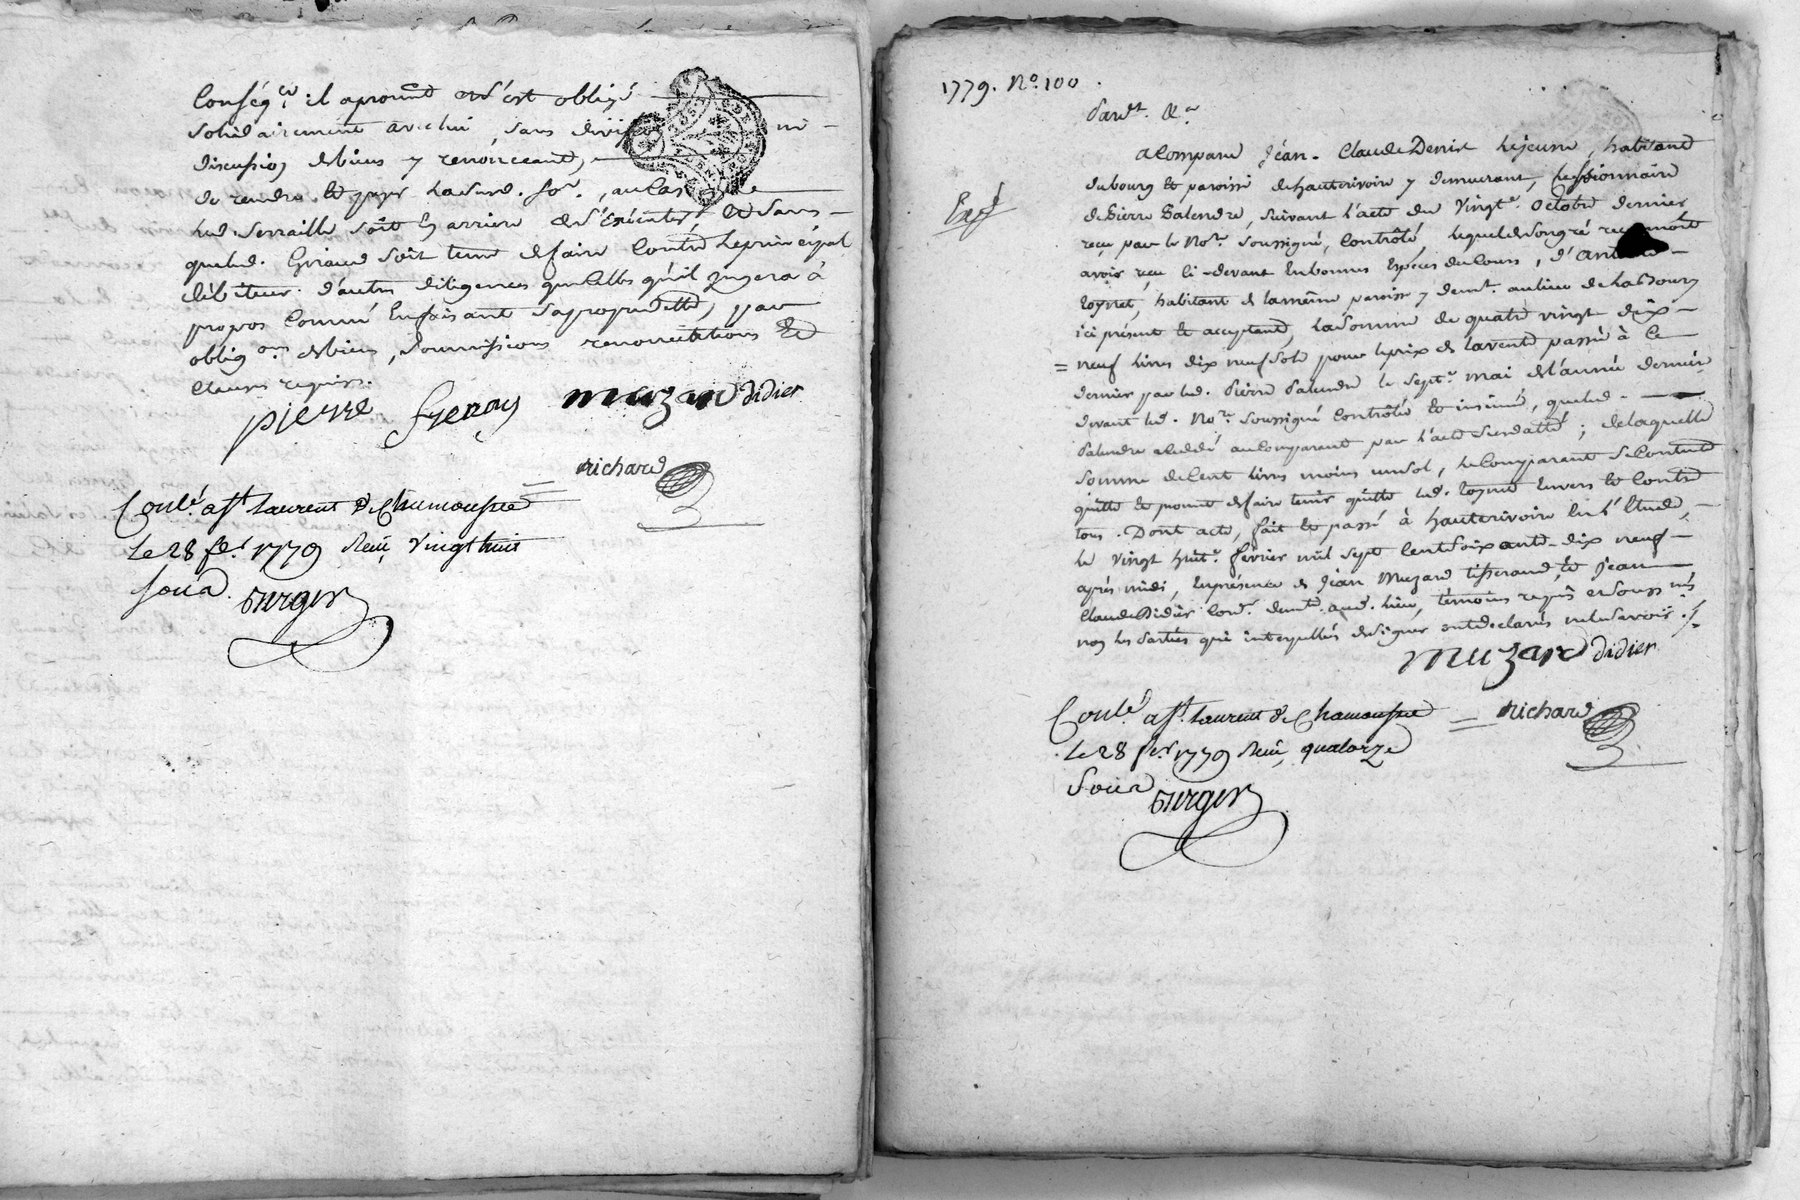 Conséq.ce il a promis et s'est obligé
solidairement avec lui, sans division ni
discussion de biens y renonceant,
de rendre et payer lad. somme, au cas
que led. Giraud soit tenu de faire contre le principal
débiteur d'autres diligences que celles qu'il jugera à
propos comme en faisant sa propre dette, par
oblig.ons de biens, soumissions renonciations et
clauses requises.
pierre
muzard didier
richard
Conlé. a St. Laurent de Chamousset
Le 28 fer. 1779 Reçu vingt huit
sous
1779. N.o 100.
Pard.t &.a
Exp.é
a Comparu Jean-Claude Denis le jeune, habitant
du bourg et paroisse de hauterivoire y demeurant, Cessionnaire
de Pierre Palendre, suivant l'acte du Vingt. Octobre dernier
reçu par le No.re soussigné, Contrôlé, lequel de son gré reconnoit
avoir reçu ci-devant en bonnes Espèces du Cours, d'Antoine
habitant de la même paroisse y dem.t au lieu de
ici présent et acceptant, la somme de quatre vingt dix-
neuf livres dix neuf sols pour le prix de la vente passée à ce
dernier par led. Pierre Palendre le sept.e mai de l'année dernière
devant led. No.re soussigné Contrôlé et insinué, que led.
Palendre a cédé au Comparant par l'acte susdatté; de laquelle
somme de Cent livres moins un sol, le Comparant se Contente
quitte et promet de faire tenir quitte led. envers et Contre
tous. Dont acte, fait et passé à hauterivoire en l'Etude,
le vingt huit.e février mil sept Cent soixante-dix neuf
après midi, En présence de Jean Muzard tisserand, et Jean
Claude Didier Cord.r dem.t aud. lieu, témoins requis et soussignés
non les Parties qui interpellées de signer ont déclarés ne le savoir.
muzard didier
richard
Conlé. a St. Laurent de Chamousset
Le 28 fer. 1779 Reçu, quatorze
Sous